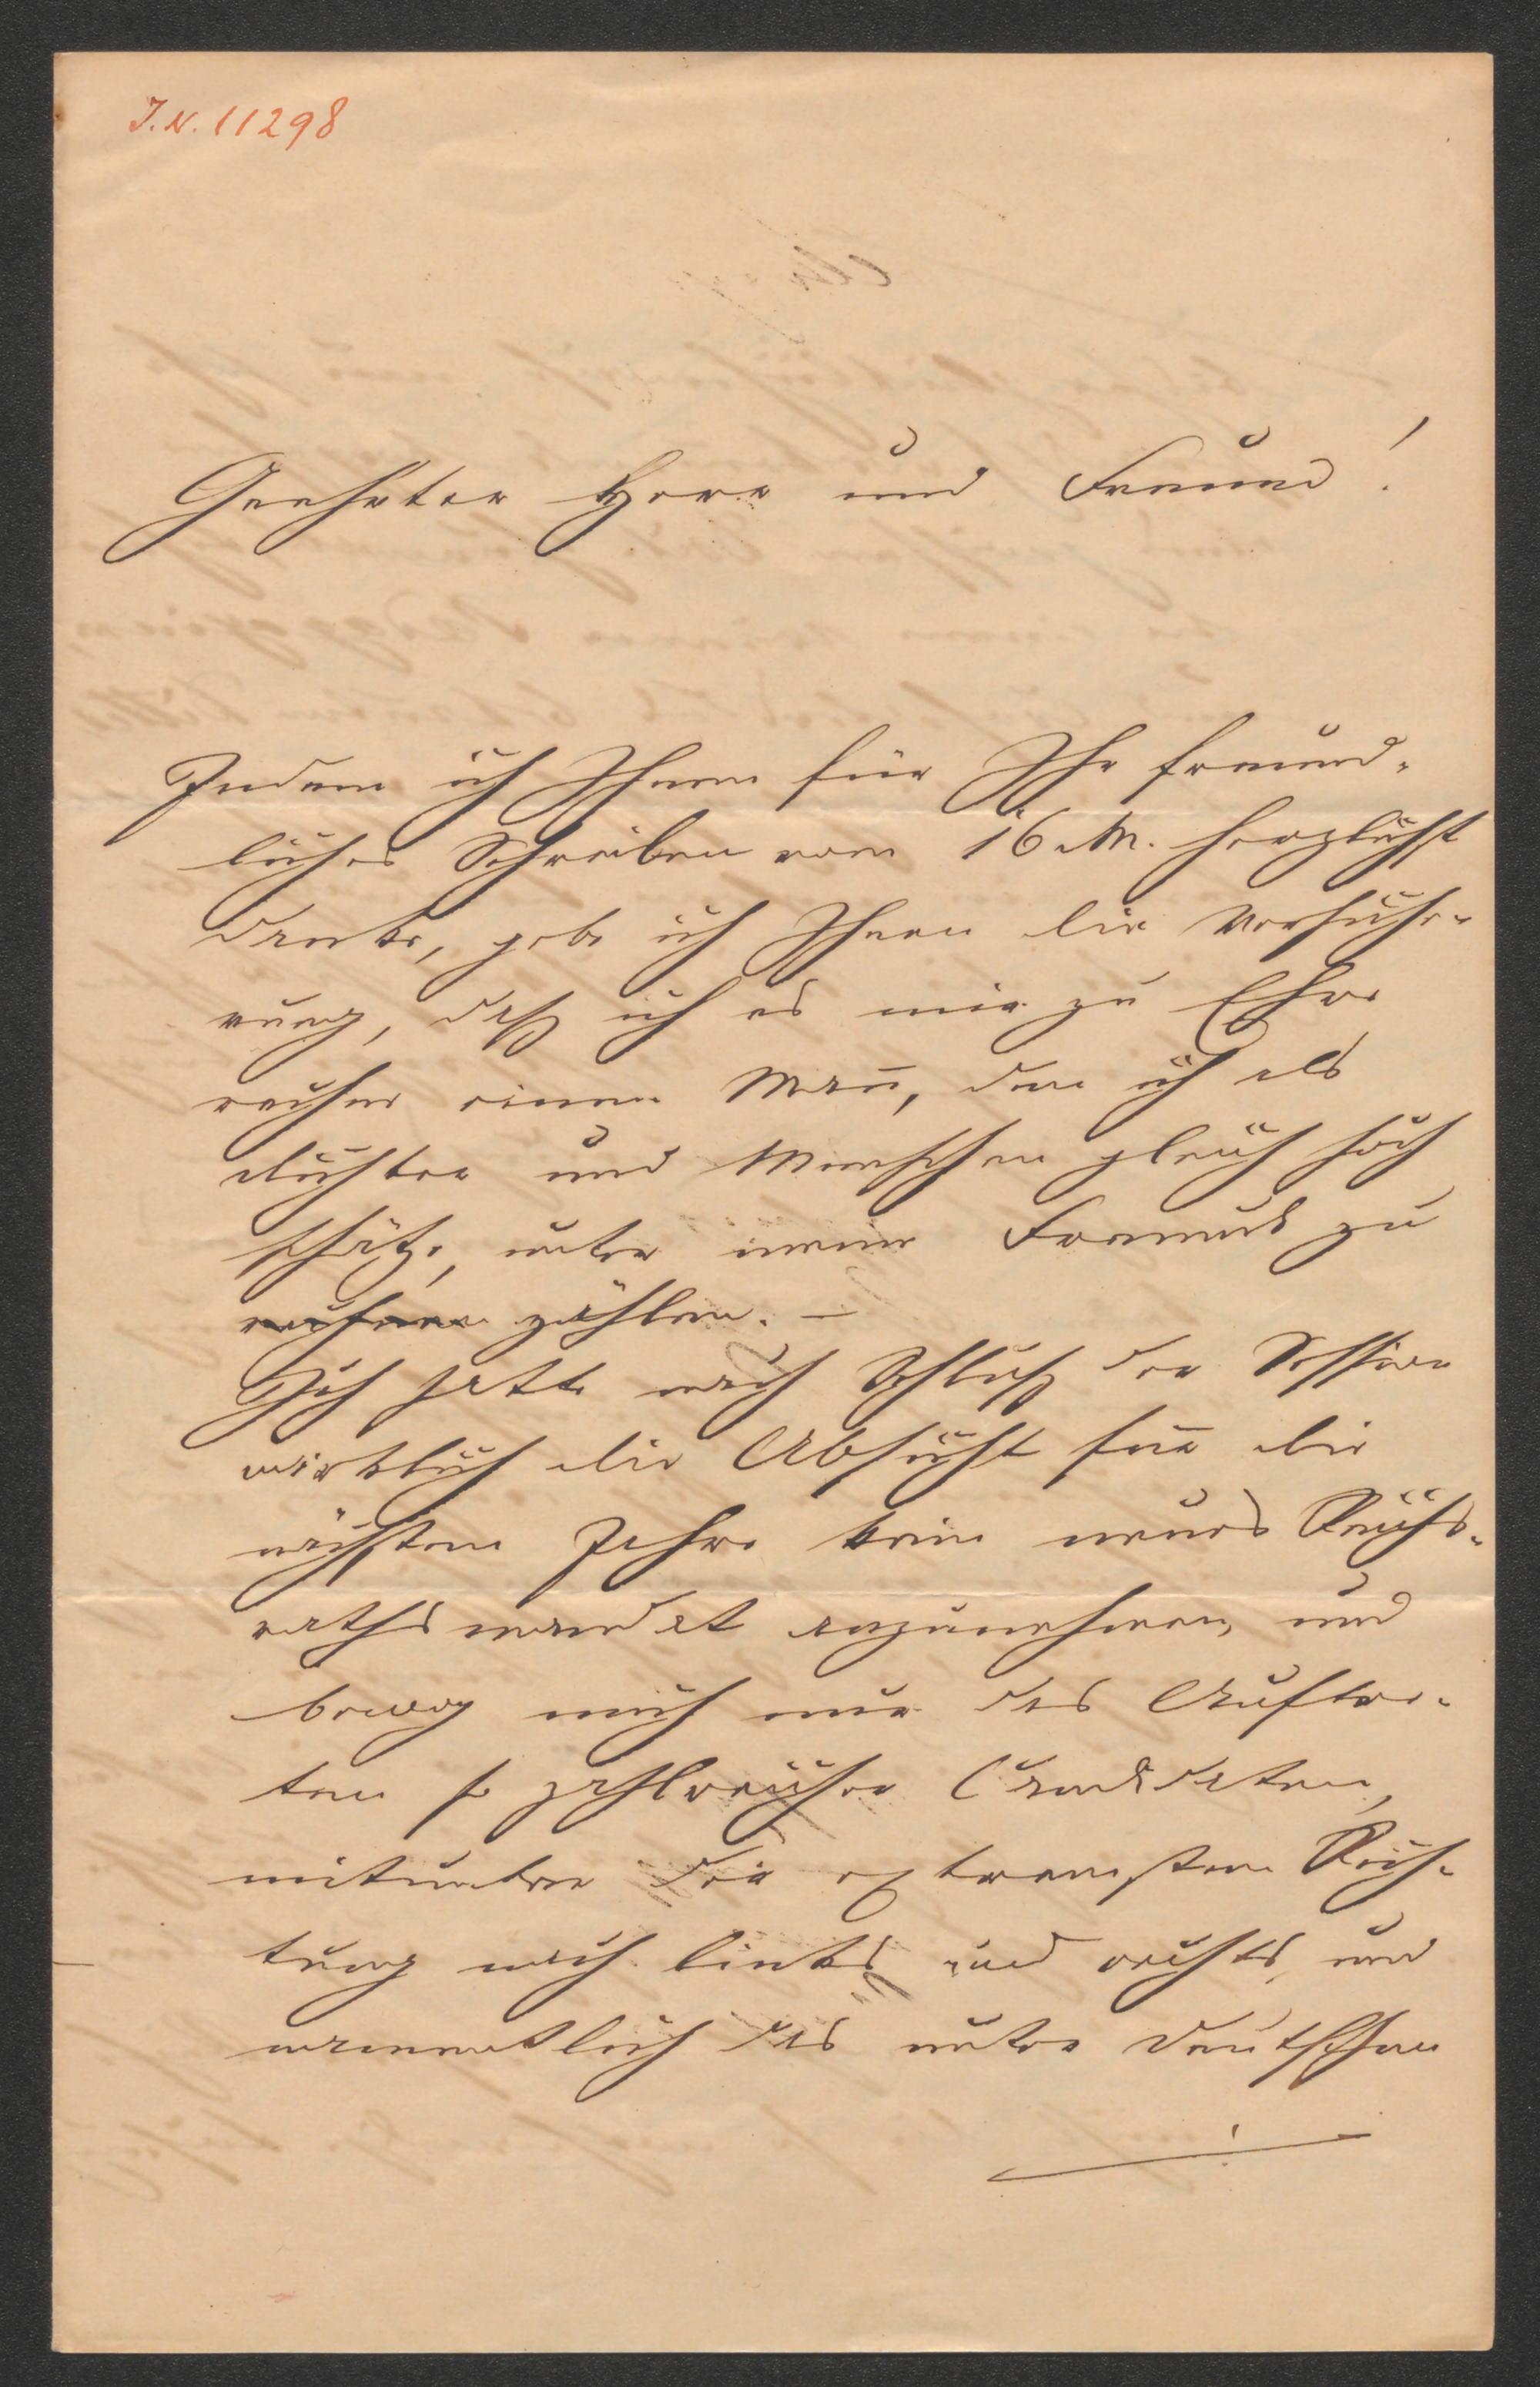 J. N. 11298
Geehrter Herr und Freund!
Indem ich Ihnen für Ihr freund-
liches Schreiben vom 16 M. herzlichst
danke, gebe ich Ihnen die Versiche-
rung, daß ich es mir zu Ehre
rechne einen Mañ, den ich als
Dichter und Menschen gleich hoch
schätze, unter meine Freunde zu
rechnen zählen. —
Ich hatte nach Schluß der Session
wirklich die Absicht für die
nächsten Jahre kein neues Reichs-
rathsmandat anzunehmen, und
bewog mich nur das Auftre-
ten so zahlreicher Candidaten,
mitunter der extremsten Rich-
tung nach links und rechts, und
namentlich das unter Deutschen